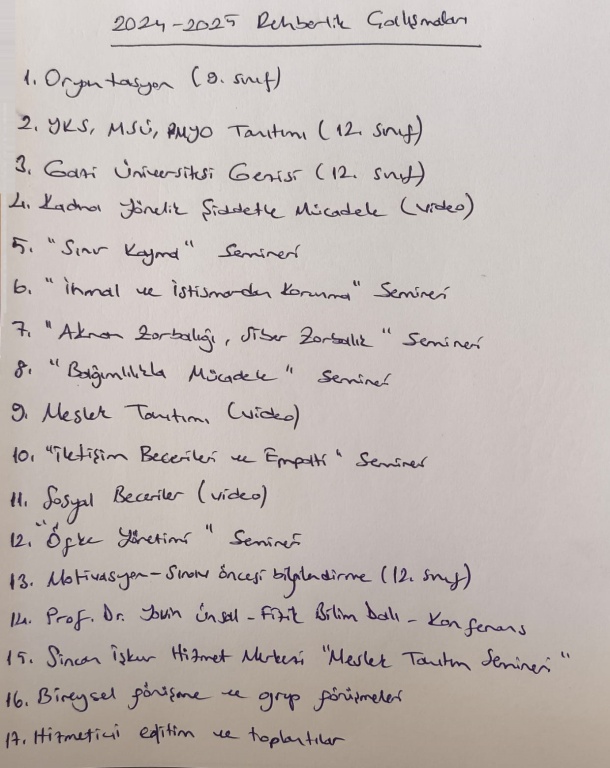 2024-2025 Rehberlik Çalışmaları
1. Oryantasyon (9. sınıf)
2. YKS, MSÜ, PMYO Tanıtımı (12. sınıf)
3. Gazi Üniversitesi Gezisi (12. sınıf)
4. Kadına Yönelik Şiddetle Mücadele (video)
5. "Sınır Koyma" Semineri
6. "İhmal ve İstismardan Korunma" Semineri
7. "Akran Zorbalığı, Siber Zorbalık" Semineri
8. "Bağımlılıkla Mücadele" Semineri
9. Meslek Tanıtımı (video)
10. "İletişim Becerileri ve Empati" Semineri
11. Sosyal Beceriler (video)
12. "Öfke Yönetimi" Semineri
13. Motivasyon-Sınav öncesi bilgilendirme (12. sınıf)
14. Prof. Dr. Ünsal - Fizik Bilim Dalı - Konferans
15. Sincan İşkur Hizmet Merkezi "Meslek Tanıtım Semineri"
16. Bireysel görüşme ve grup görüşmeleri
17. Hizmetiçi eğitim ve toplantılar